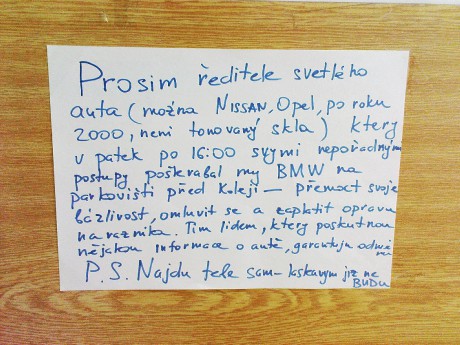 Prosim ředitele svetlého
auta (možna NISSAN, Opel, po roku
2000, není tonovaný skla) který
v patek po 16:00 svymi nepořadnymi
postupy poškrabal my BMW na
parkovišti před Kolejí — přemoct svoje
bázlivost, omluvit se a zaplatit opravu
narazníka. Tím lidem, ktery poskutnou
nějakou informace o autě, garantuju odměnu
P.S. Najdu tebe sam - laskavym již ne
BUDU